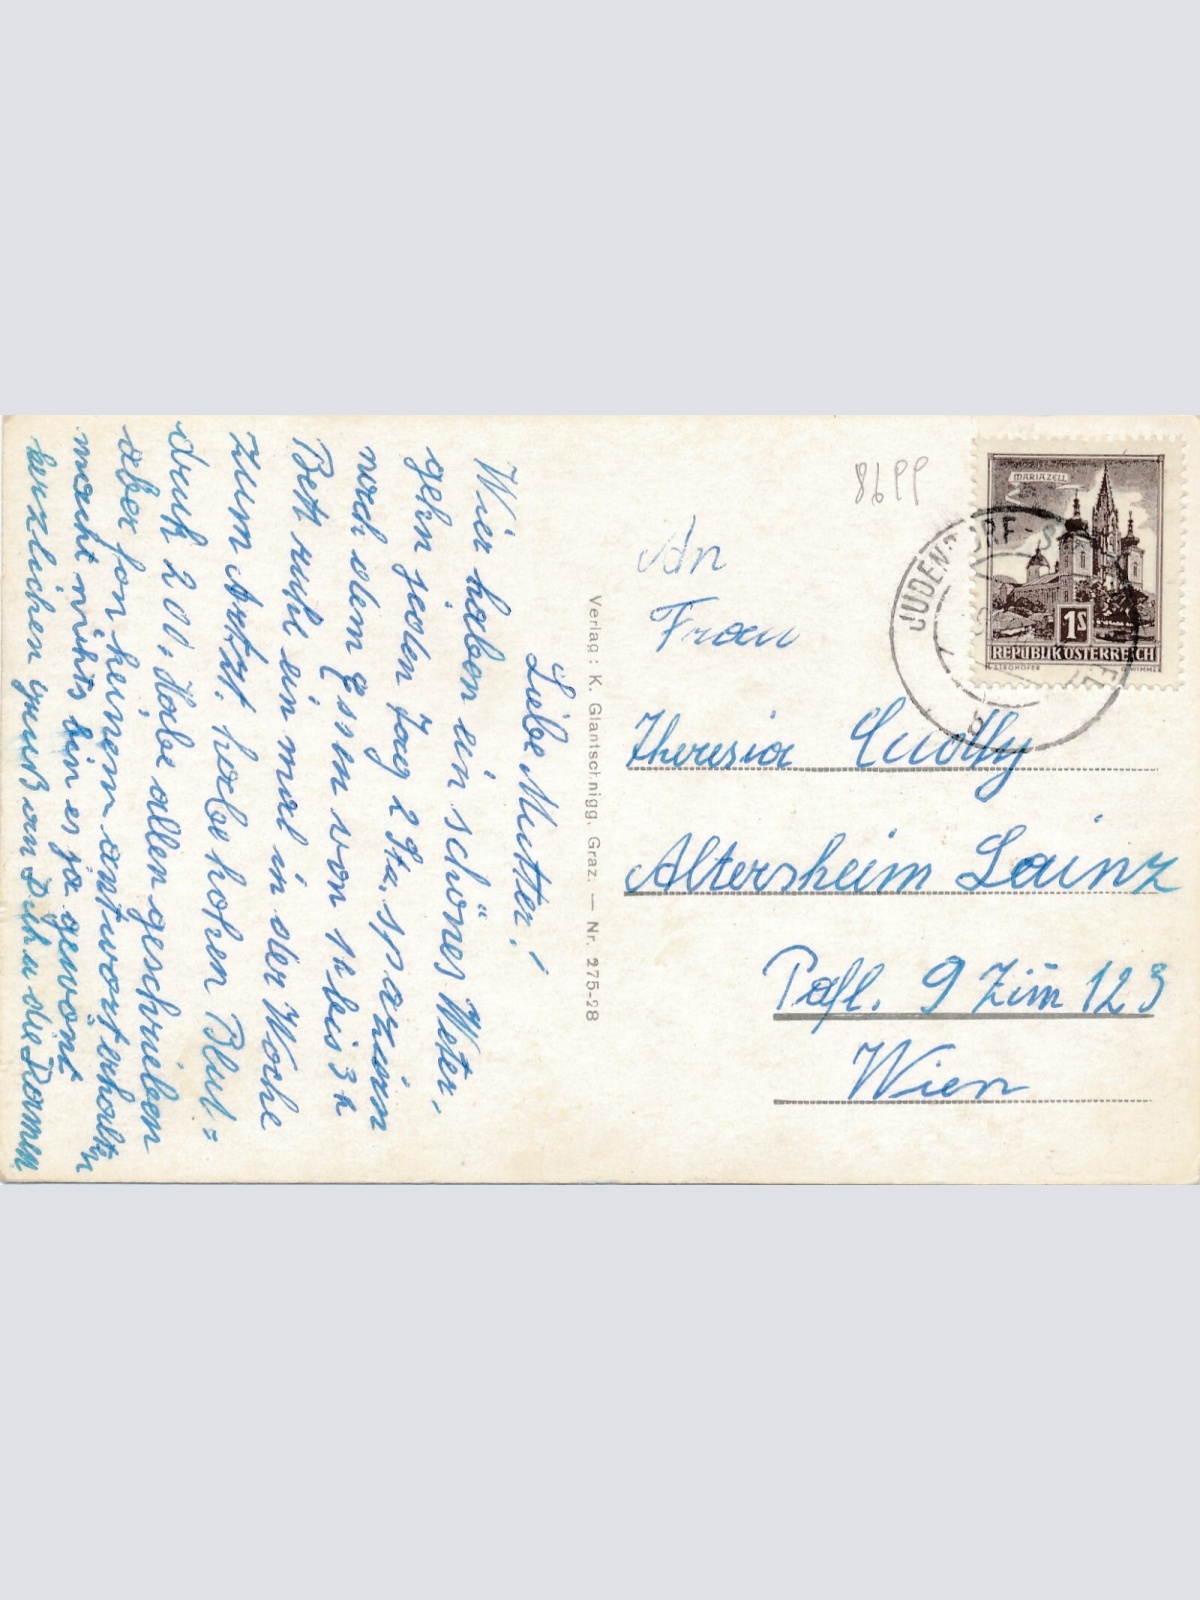 Liebe Mutter!
Wier haben ein schönes Weter,
gehn jeden Tag 2 Sta, spaziern
nach dem Essen von 1h bis 3h
Bett ruhe ein mal in der Woche
zum Artzt. habe hohen Blut=
druck 200, Habe allen geschrieben
aber fon keinem antwort erhaltn
macht nichts bin es ja gewont
herzlichen gruß an Dich u die Damen
Verlag: K. Glantschnigg, Graz. — Nr. 275-28
8699
MARIAZELL
1S
REPUBLIK ÖSTERREICH
G. WIMMER
JUDENDORF-S
b
An
Frau
Theresia
Altersheim Lainz
Pafl. 9 Zim 123
Wien